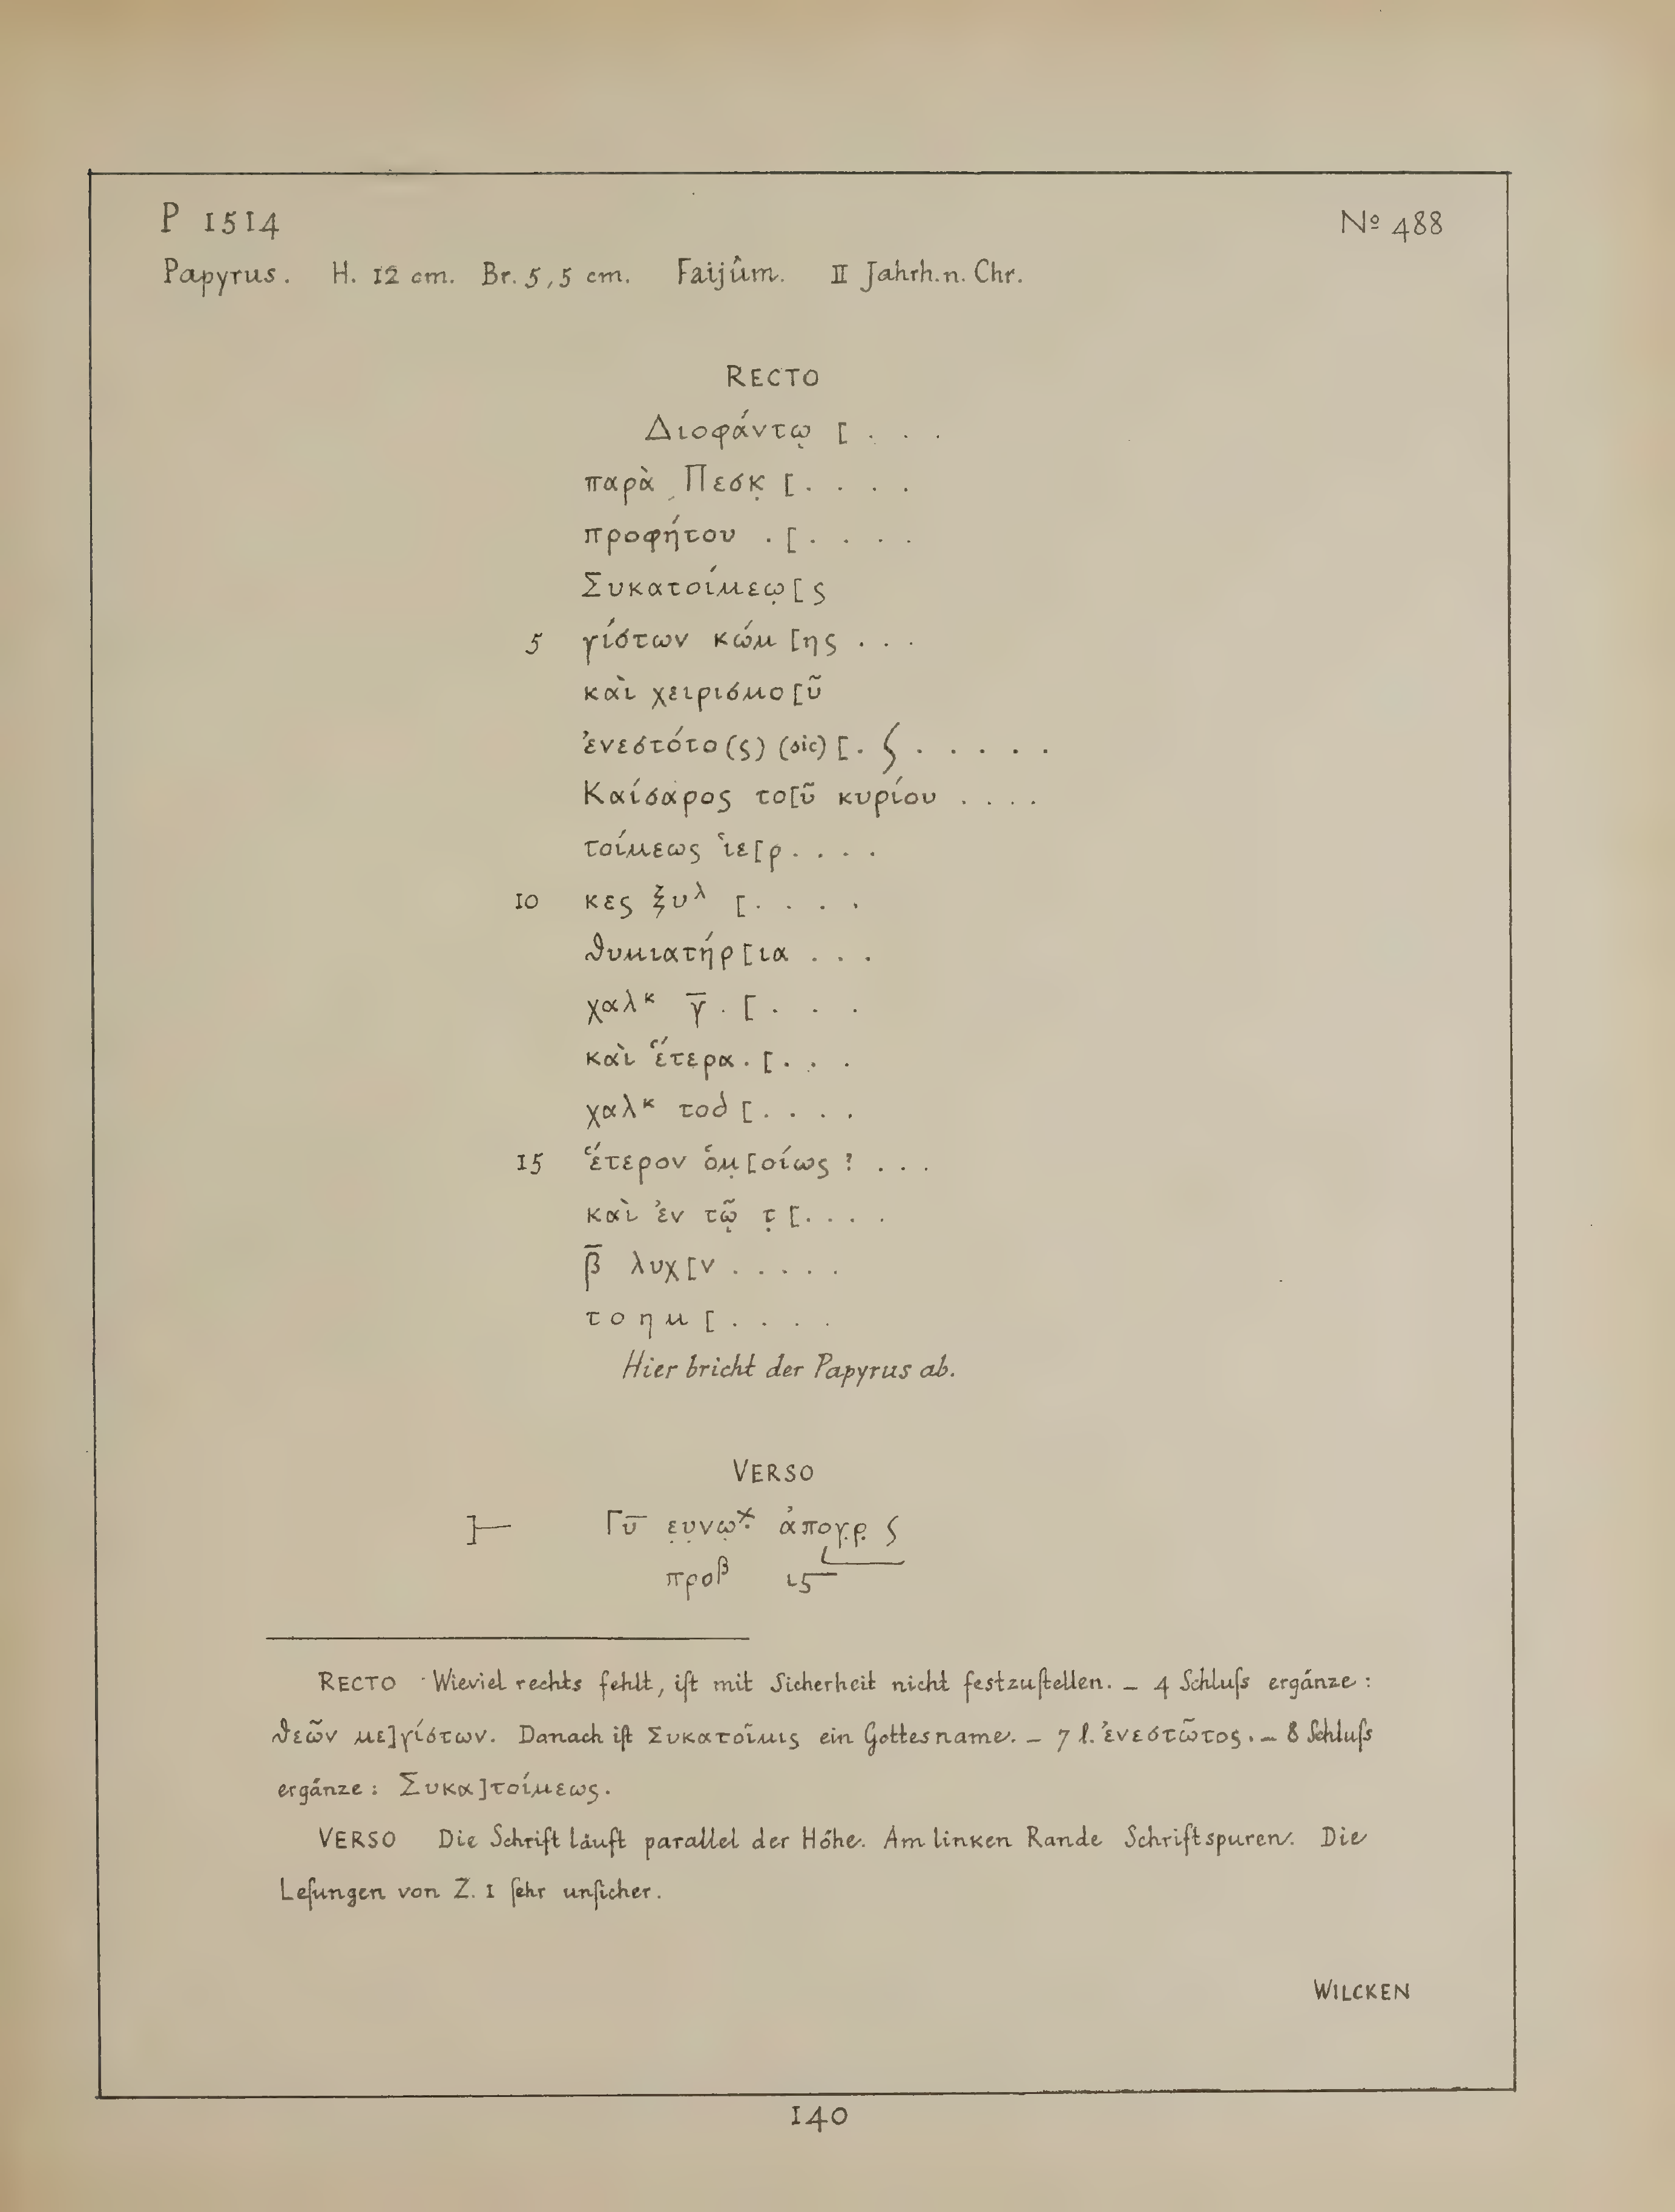 P 1514
Nº 488
Papyrus. H. 12 cm. Br. 5,5 cm. Faijûm. II Jahrh. n. Chr.
RECTO
Διοφάντῳ [ . . .
παρὰ Πεσκ̣ [ . . . .
προφήτου . [ . . . .
Συκατοίμεω̣[ς
5 γίστων κώμ[ης . . .
καὶ χειρισμο[ῦ
ἐνεστότο(ς) (sic) [ . ϛ . . . . .
Καίσαρος το[ῦ κυρίου . . . .
τοίμεως ἱε[ρ . . . .
10 κες ξυλ [ . . . .
θυμιατήρ[ια . . .
χαλκ γ̅ . [ . . .
καὶ ἕτερα . [ . . .
χαλκ τοδ [ . . . .
15 ἕτερον ὁμ̣[οίως ? . . .
καὶ ἐν τῷ τ̣ [ . . . .
β̅ λυχ[ν . . . . .
τ ο η μ [ . . . .
Hier bricht der Papyrus ab.
VERSO
]— Γῡ ε̣υ̣νω̣ ἀπογ̣ρ̣ ϛ
προβ ιϛ
RECTO Wieviel rechts fehlt, iſt mit Sicherheit nicht festzuſtellen. – 4 Schluſs ergänze :
θεῶν με]γίστων. Danach iſt Συκατοῖμις ein Gottesname. – 7 l. ἐνεστῶτος. – 8 Schluſs
ergänze : Συκα]τοίμεως.
VERSO Die Schrift läuft parallel der Höhe. Am linken Rande Schriftspuren. Die
Leſungen von Z. 1 ſehr unſicher.
WILCKEN
140